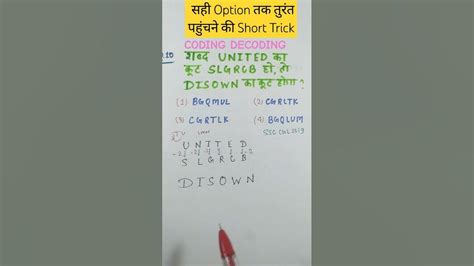 सही Option तक तुरंत
पहुंचने की Short Trick
CODING DECODING
0.10 शब्द UNITED का
कूट SLGRCB हो, तो
DISOWN का कूट होगा ?
(1) BGQMUL (2) CGRLTK
(3) CGRTLK (4) BGQLUM
SSC CGL 2019
U N I T E D
-2 -2 -2 -2
S L G R C B
D I S O W N